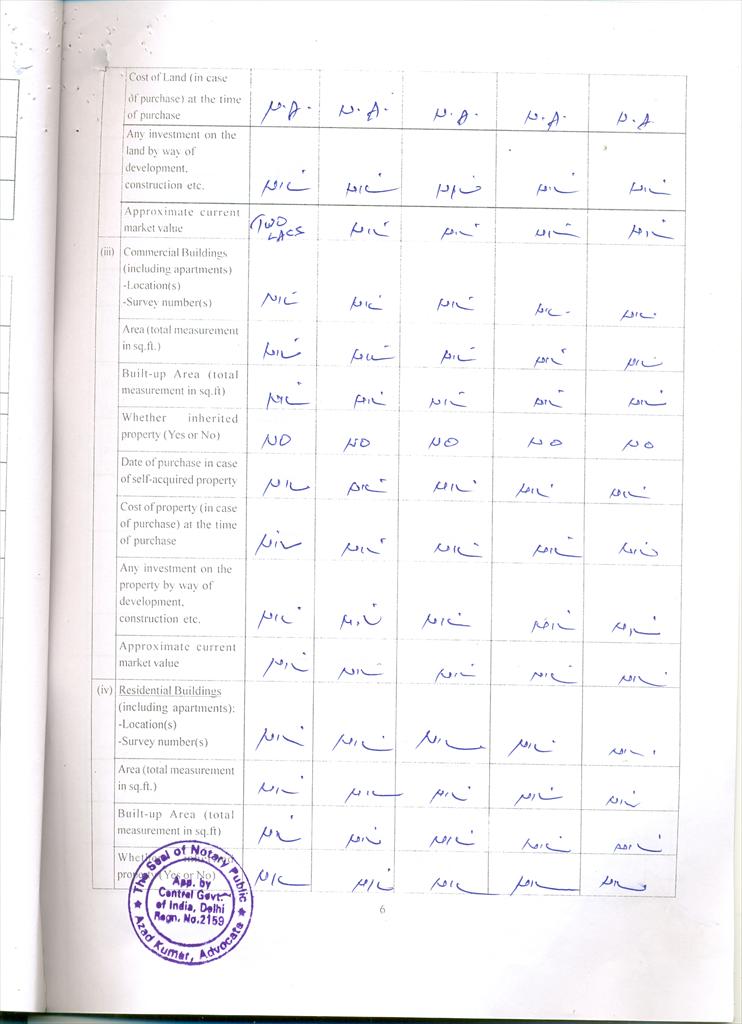 Cost of Land (in case
of purchase) at the time
of purchase N.A. N.A. N.A. N.A. N.A
Any investment on the
land by way of
development,
construction etc. NIL NIL NIL NIL NIL
Approximate current
market value TWO LACS NIL NIL NIL NIL
(iii) Commercial Buildings
(including apartments)
-Location(s)
-Survey number(s) NIL NIL NIL NIL NIL
Area (total measurement
in sq.ft.) NIL NIL NIL NIL NIL
Built-up Area (total
measurement in sq.ft) NIL NIL NIL NIL NIL
Whether inherited
property (Yes or No) NO NO NO NO NO
Date of purchase in case
of self-acquired property NIL NIL NIL NIL NIL
Cost of property (in case
of purchase) at the time
of purchase NIL NIL NIL NIL NIL
Any investment on the
property by way of
development,
construction etc. NIL NIL NIL NIL NIL
Approximate current
market value NIL NIL NIL NIL NIL
(iv) Residential Buildings
(including apartments):
-Location(s)
-Survey number(s) NIL NIL NIL NIL NIL
Area (total measurement
in sq.ft.) NIL NIL NIL NIL NIL
Built-up Area (total
measurement in sq.ft) NIL NIL NIL NIL NIL
(Yes or No) NIL NIL NIL NIL NIL
The Seal of Notary Public
App. by
Central Govt.
of India, Delhi
Regn. No.2159
Azad Kumar, Advocate
6